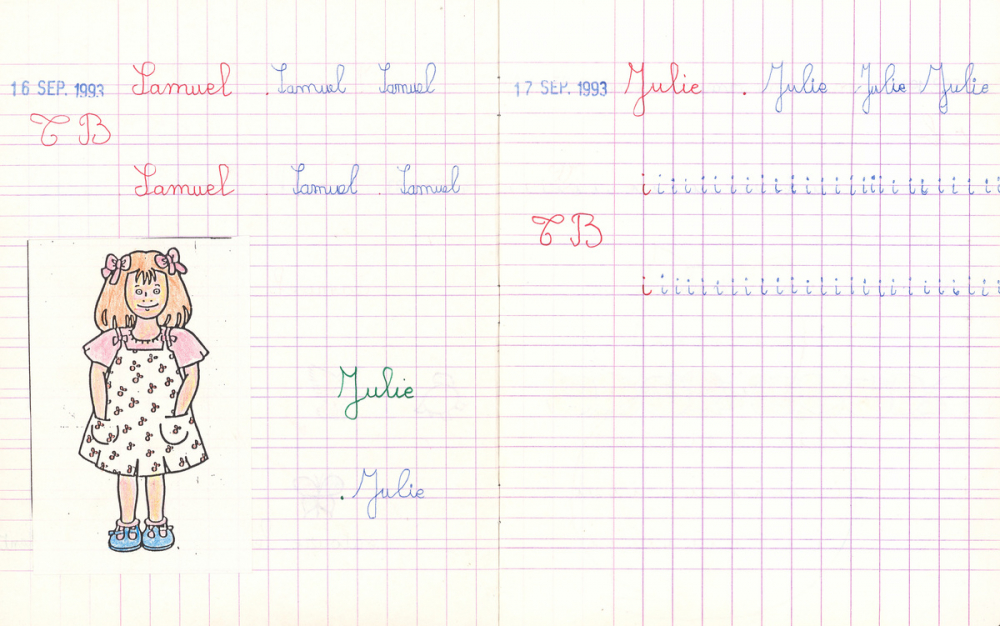 16 SEP. 1993 Samuel . Samuel Samuel
T B
Samuel . Samuel . Samuel
Julie
. Julie
17 SEP. 1993 Julie . Julie Julie Julie
i i i i i i i i i i i i i i i i i i i i i i i i i
T B
i i i i i i i i i i i i i i i i i i i i i i i i